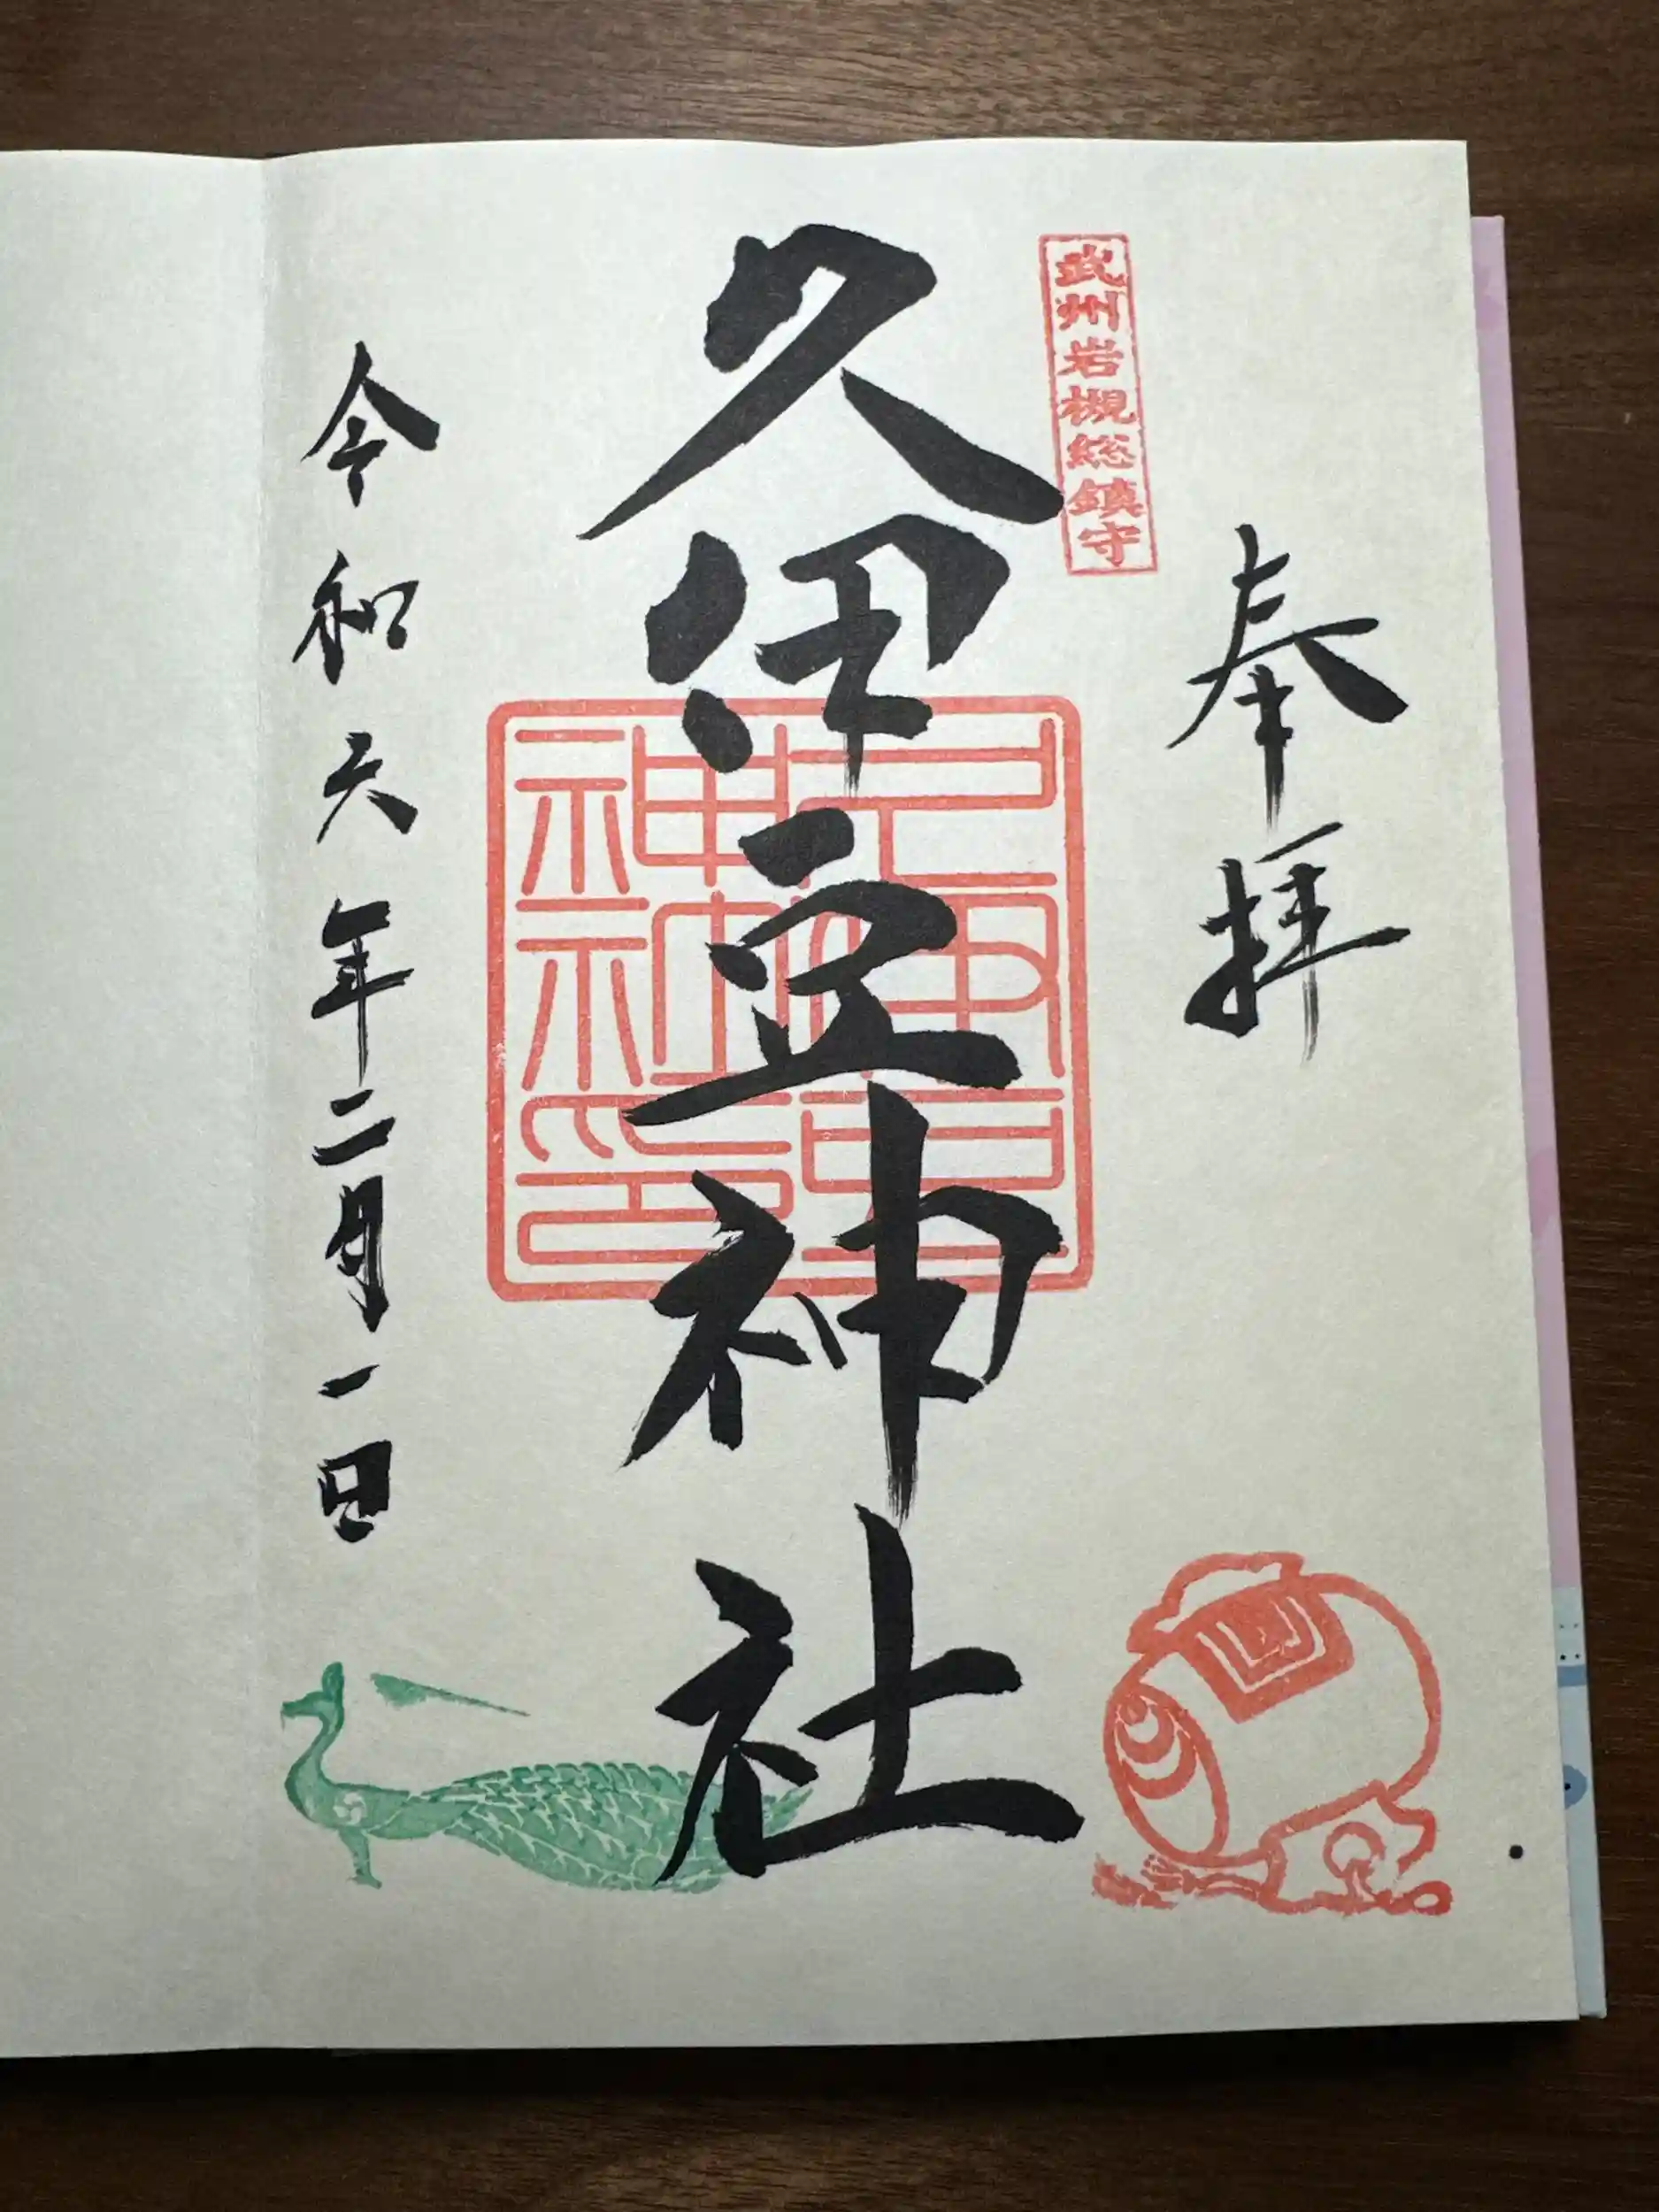 奉拝
武州岩槻総鎮守
久伊豆神社
令和六年二月一日